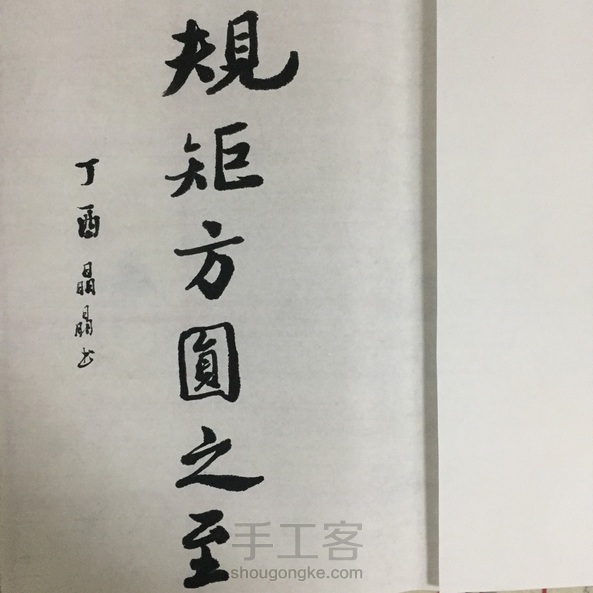 規矩方圓之至
丁酉 晶晶书
手工客
shougongke.com